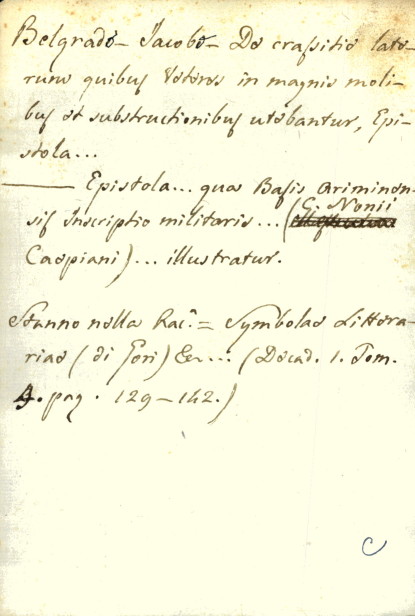 Belgrado – Jacobo – De crassitie late-
rum quibus Veteres in magnis moli-
bus et substructionibus utebantur, Epi-
stola...
——— Epistola... qua Basis Ariminen-
sis Inscriptio militaris... (C. Nonii
Caepiani)... illustratur.
Stanno nella Rac.ª = Symbolae Littera-
riae (di Gori) Ec... (Decad. 1. Tom.
4. pag. 129–142.)
C